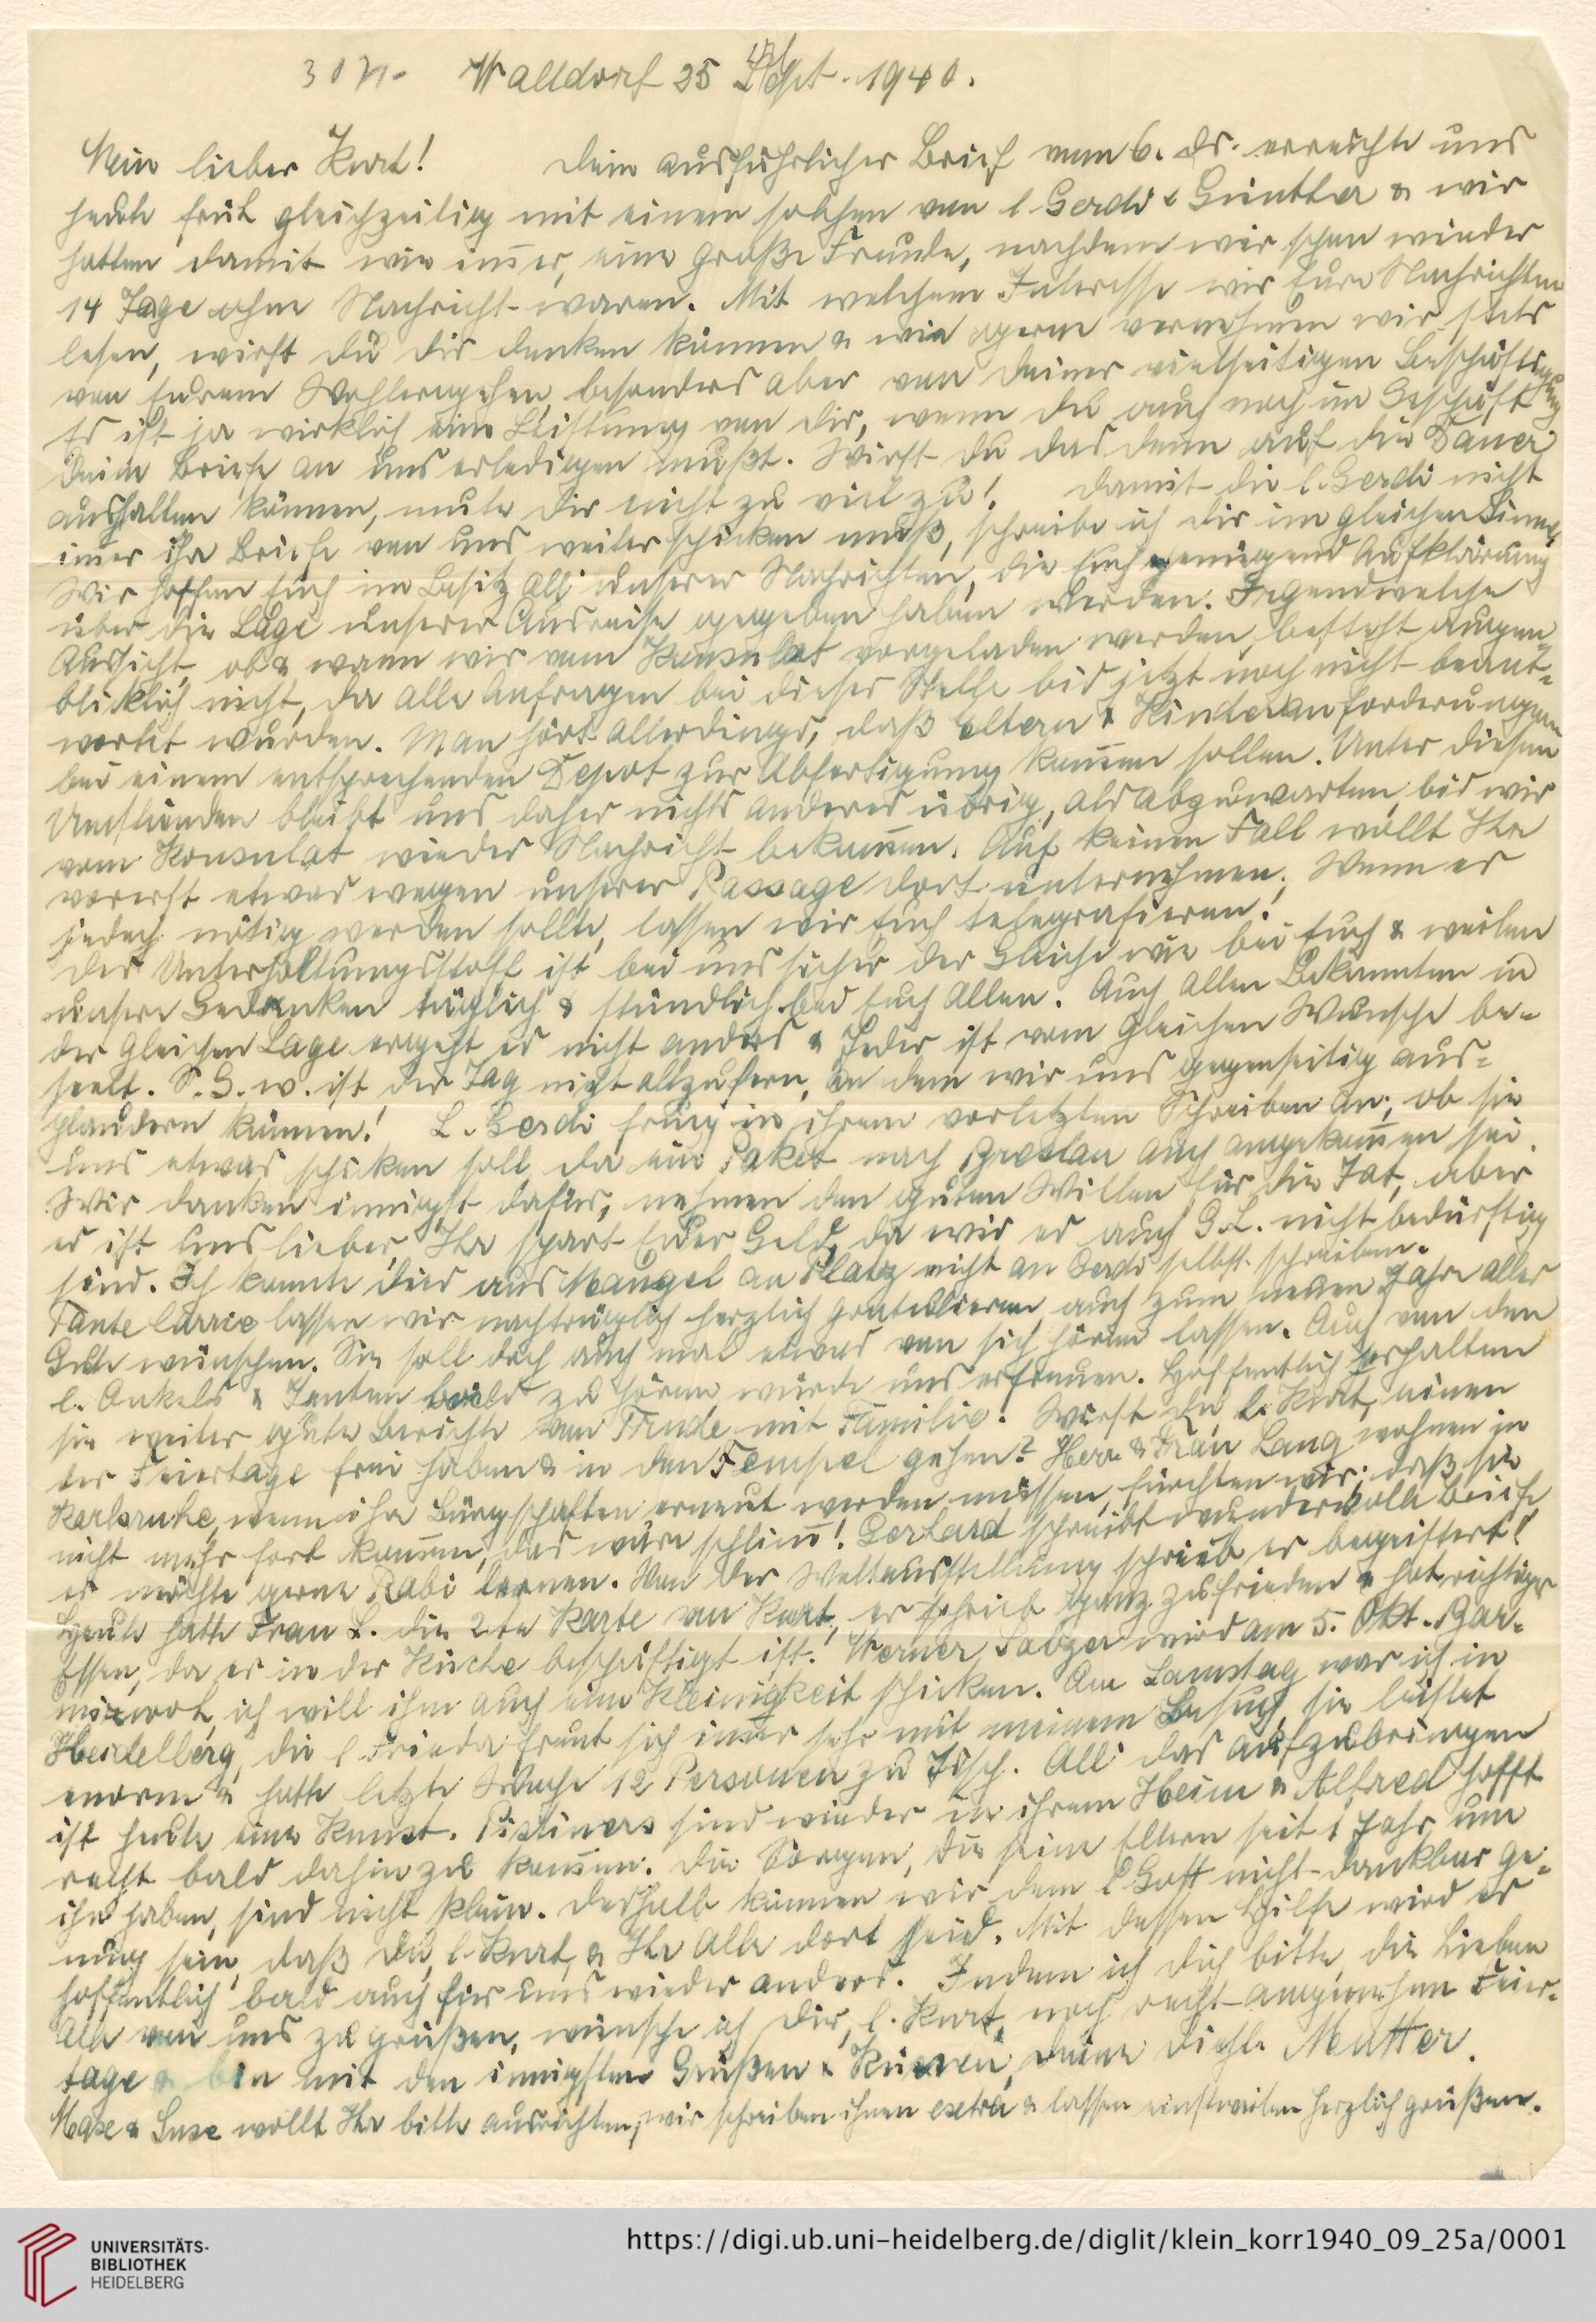 30 N. Walldorf 25 Sept. 1940.
Mein lieber Kurt! Dein ausführlicher Brief vom 6. ds. erreichte uns
heute früh gleichzeitig mit einem solchen von l. Gerdi & Günther & wir
hatten damit wie im̄er, eine große Freude, nachdem wir schon wieder
14 Tage ohne Nachricht waren. Mit welchem Interesse wir Eure Nachrichten
lesen, wirst du dir denken können & wie gerne vernehmen wir stets
von Eurem Wohlergehen, besonders aber von deiner vielseitigen Beschäftigung
Es ist ja wirklich eine Leistung von dir, wenn du auch noch im Geschäft
deine Briefe an uns erledigen mußt. Wirst du das denn auf die Dauer
aushalten können, mute dir nicht zu viel zu! Damit die l. Gerdi nicht
im̄er ihre Briefe von uns weiter schicken muß, schreibe ich dir im gleichen Sinne,
Wir hoffen Euch im Besitz all' unserer Nachrichten, die Euch genügend Aufklärung
über die Lage unserer Ausreise gegeben haben werden. Irgendwelche
Aussicht, ob & wann wir vom Konsulat vorgeladen werden, besteht augen-
blicklich nicht, da alle Anfragen bei dieser Stelle bis jetzt noch nicht beant-
wortet wurden. Man hört allerdings, daß Eltern & Kinderanforderungen
bei einem entsprechenden Depot zur Abfertigung kom̄en sollen. Unter diesen
Umständen bleibt uns daher nichts anderes übrig, als abzuwarten, bis wir
vom Konsulat wieder Nachricht bekom̄en. Auf keinen Fall wollt Ihr
vorerst etwas wegen unserer Passage dort unternehmen. Wenn es
jedoch nötig werden sollte, lassen wir Euch telegrafieren!
Der Unterhaltungsstoff ist bei uns sicher der Gleiche wie bei Euch & weilen
unsere Gedanken täglich & stündlich bei Euch Allen. Auch allen Bekannten in
der gleichen Lage ergeht es nicht anders & Jeder ist vom gleichen Wunsche be-
seelt. S. G. w. ist der Tag nicht allzufern, an dem wir uns gegenseitig aus-
plaudern können! L. Gerdi frug in ihrem vorletzten Schreiben an, ob sie
uns etwas schicken soll, da ein Paket nach Breslau auch angekom̄en sei.
Wir danken innigst dafür, nehmen den guten Willen für die Tat, aber
es ist uns lieber, Ihr spart Euer Geld, da wir es auch G. L. nicht bedürftig
sind. Ich konnte dies aus Mangel an Platz nicht an Gerdi selbst schreiben.
Tante Carrie lassen wir nachträglich herzlich gratulieren, auch zum neuen Jahre alles
Gute wünschen. Sie soll doch auch mal etwas von sich hören lassen. Auch von den
l. Onkels & Tanten bald zu hören, würde uns erfreuen. Hoffentlich erhalten
sie weiter gute Berichte von Trude mit Familie. Wirst du, l. Kurt, einen
der Feiertage frei haben & in den Tempel gehen? Herr & Frau Lang wohnen in
Karlsruhe, wenn ihre Bürgschaften erneut werden müssen, fürchten wir, daß sie
nicht mehr fort kom̄en, das wäre schlim̄! Gerhard schreibt wundervolle Briefe
er möchte gerne Rabi lernen. Von der Weltausstellung schrieb er begeistert!
Heute hatte Frau L. die 2te Karte von Kurt, er schrieb ganz zufrieden & hat richtiges
Essen, da er in der Küche beschäftigt ist. Werner wird am 5. Okt. Bar-
mizwoh, ich will ihm auch eine Kleinigkeit schicken. Am Samstag war ich in
Heidelberg, die l. Frieda freut sich im̄er sehr mit meinem Besuch, sie leistet
enorm & hatte letzte Woche 12 Personen zu Tisch. All' das aufzubringen
ist heute eine Kunst. Pistiners sind wieder in ihrem Heim & Alfred hofft
recht bald dahin zu kom̄en. Die Sorgen, die seine Eltern seit 1 Jahr um
ihn haben, sind nicht klein. Deshalb können wir dem l. Gott nicht dankbar ge-
nug sein, daß du, l. Kurt, & Ihr Alle dort seid. Mit dessen Hilfe wird es
hoffentlich bald auch für uns wieder anders. Indem ich dich bitte, die Lieben
Alle von uns zu grüßen, wünsche ich dir, l. Kurt, noch recht angenehme Feier-
tage & bin mit den innigsten Grüßen & Küssen, deine dichl. Mutter.
Max & Suse wollt Ihr bitte ausrichten, wir schreiben ihnen extra & lassen einstweilen herzlich grüßen.
UNIVERSITÄTS-
BIBLIOTHEK
HEIDELBERG
https://digi.ub.uni-heidelberg.de/diglit/klein_korr1940_09_25a/0001